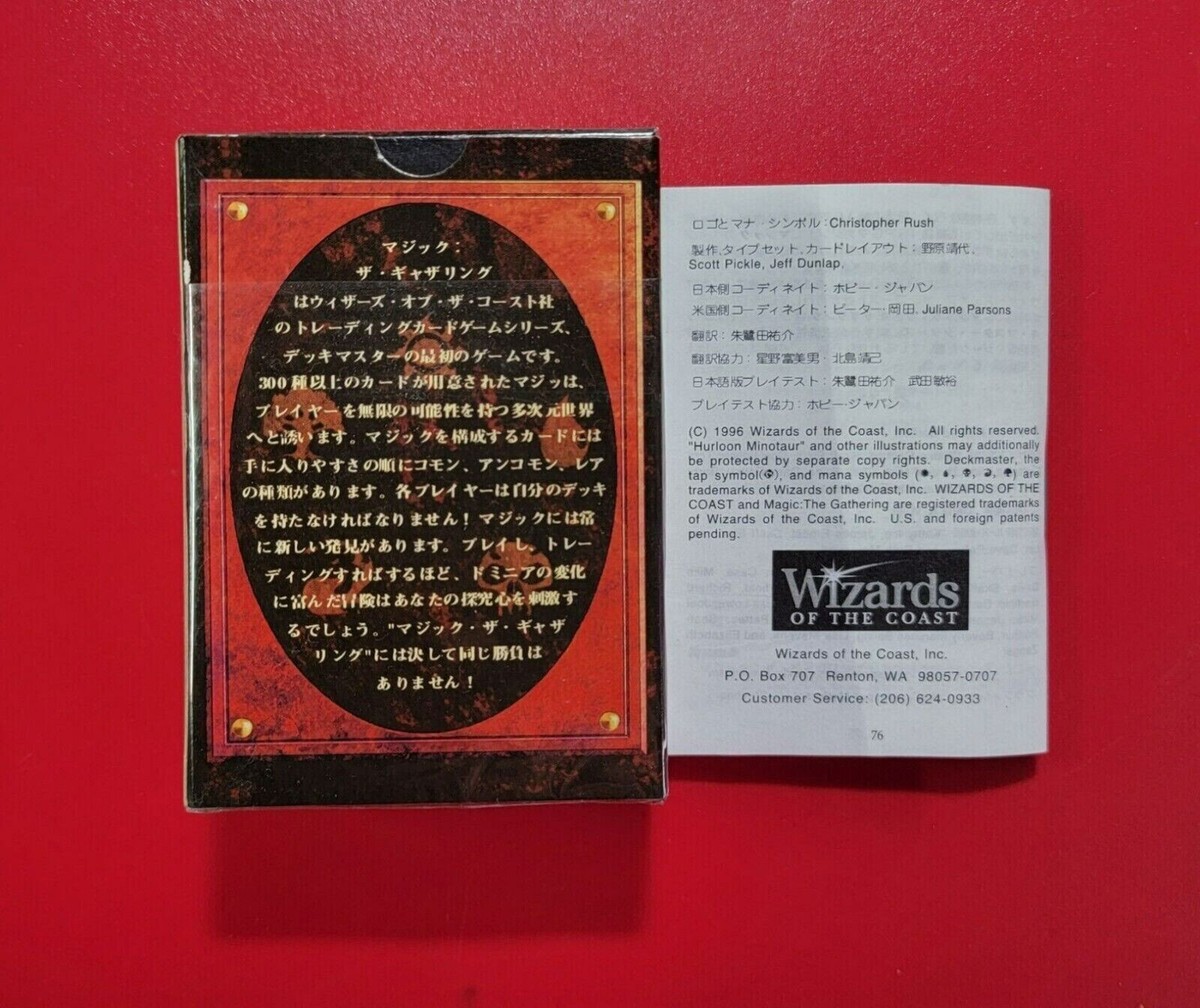 マジック：
ザ・ギャザリング
はウィザーズ・オブ・ザ・コースト社
のトレーディングカードゲームシリーズ、
デッキマスターの最初のゲームです。
300種以上のカードが用意されたマジッは、
プレイヤーを無限の可能性を持つ多次元世界
へと誘います。マジックを構成するカードには
手に入りやすさの順にコモン、アンコモン、レア
の種類があります。各プレイヤーは自分のデッキ
を持たなければなりません！マジックには常
に新しい発見があります。プレイし、トレー
ディングすればするほど、ドミニアの変化
に富んだ冒険はあなたの探究心を刺激す
るでしょう。"マジック・ザ・ギャザ
リング"には決して同じ勝負は
ありません！
ロゴとマナ・シンボル：Christopher Rush
製作，タイプセット，カードレイアウト：野原靖代，
Scott Pickle, Jeff Dunlap,
日本側コーディネイト：ホビー・ジャパン
米国側コーディネイト：ピーター・岡田, Juliane Parsons
翻訳：朱鷺田祐介
翻訳協力：星野富美男・北島靖己
日本語版プレイテスト：朱鷺田祐介　武田敏裕
プレイテスト協力：ホビー・ジャパン
(C) 1996 Wizards of the Coast, Inc. All rights reserved.
"Hurloon Minotaur" and other illustrations may additionally
be protected by separate copy rights. Deckmaster, the
tap symbol( ), and mana symbols ( , , , , ) are
trademarks of Wizards of the Coast, Inc. WIZARDS OF THE
COAST and Magic:The Gathering are registered trademarks
of Wizards of the Coast, Inc. U.S. and foreign patents
pending.
Wizards
OF THE COAST
Wizards of the Coast, Inc.
P.O. Box 707 Renton, WA 98057-0707
Customer Service: (206) 624-0933
76